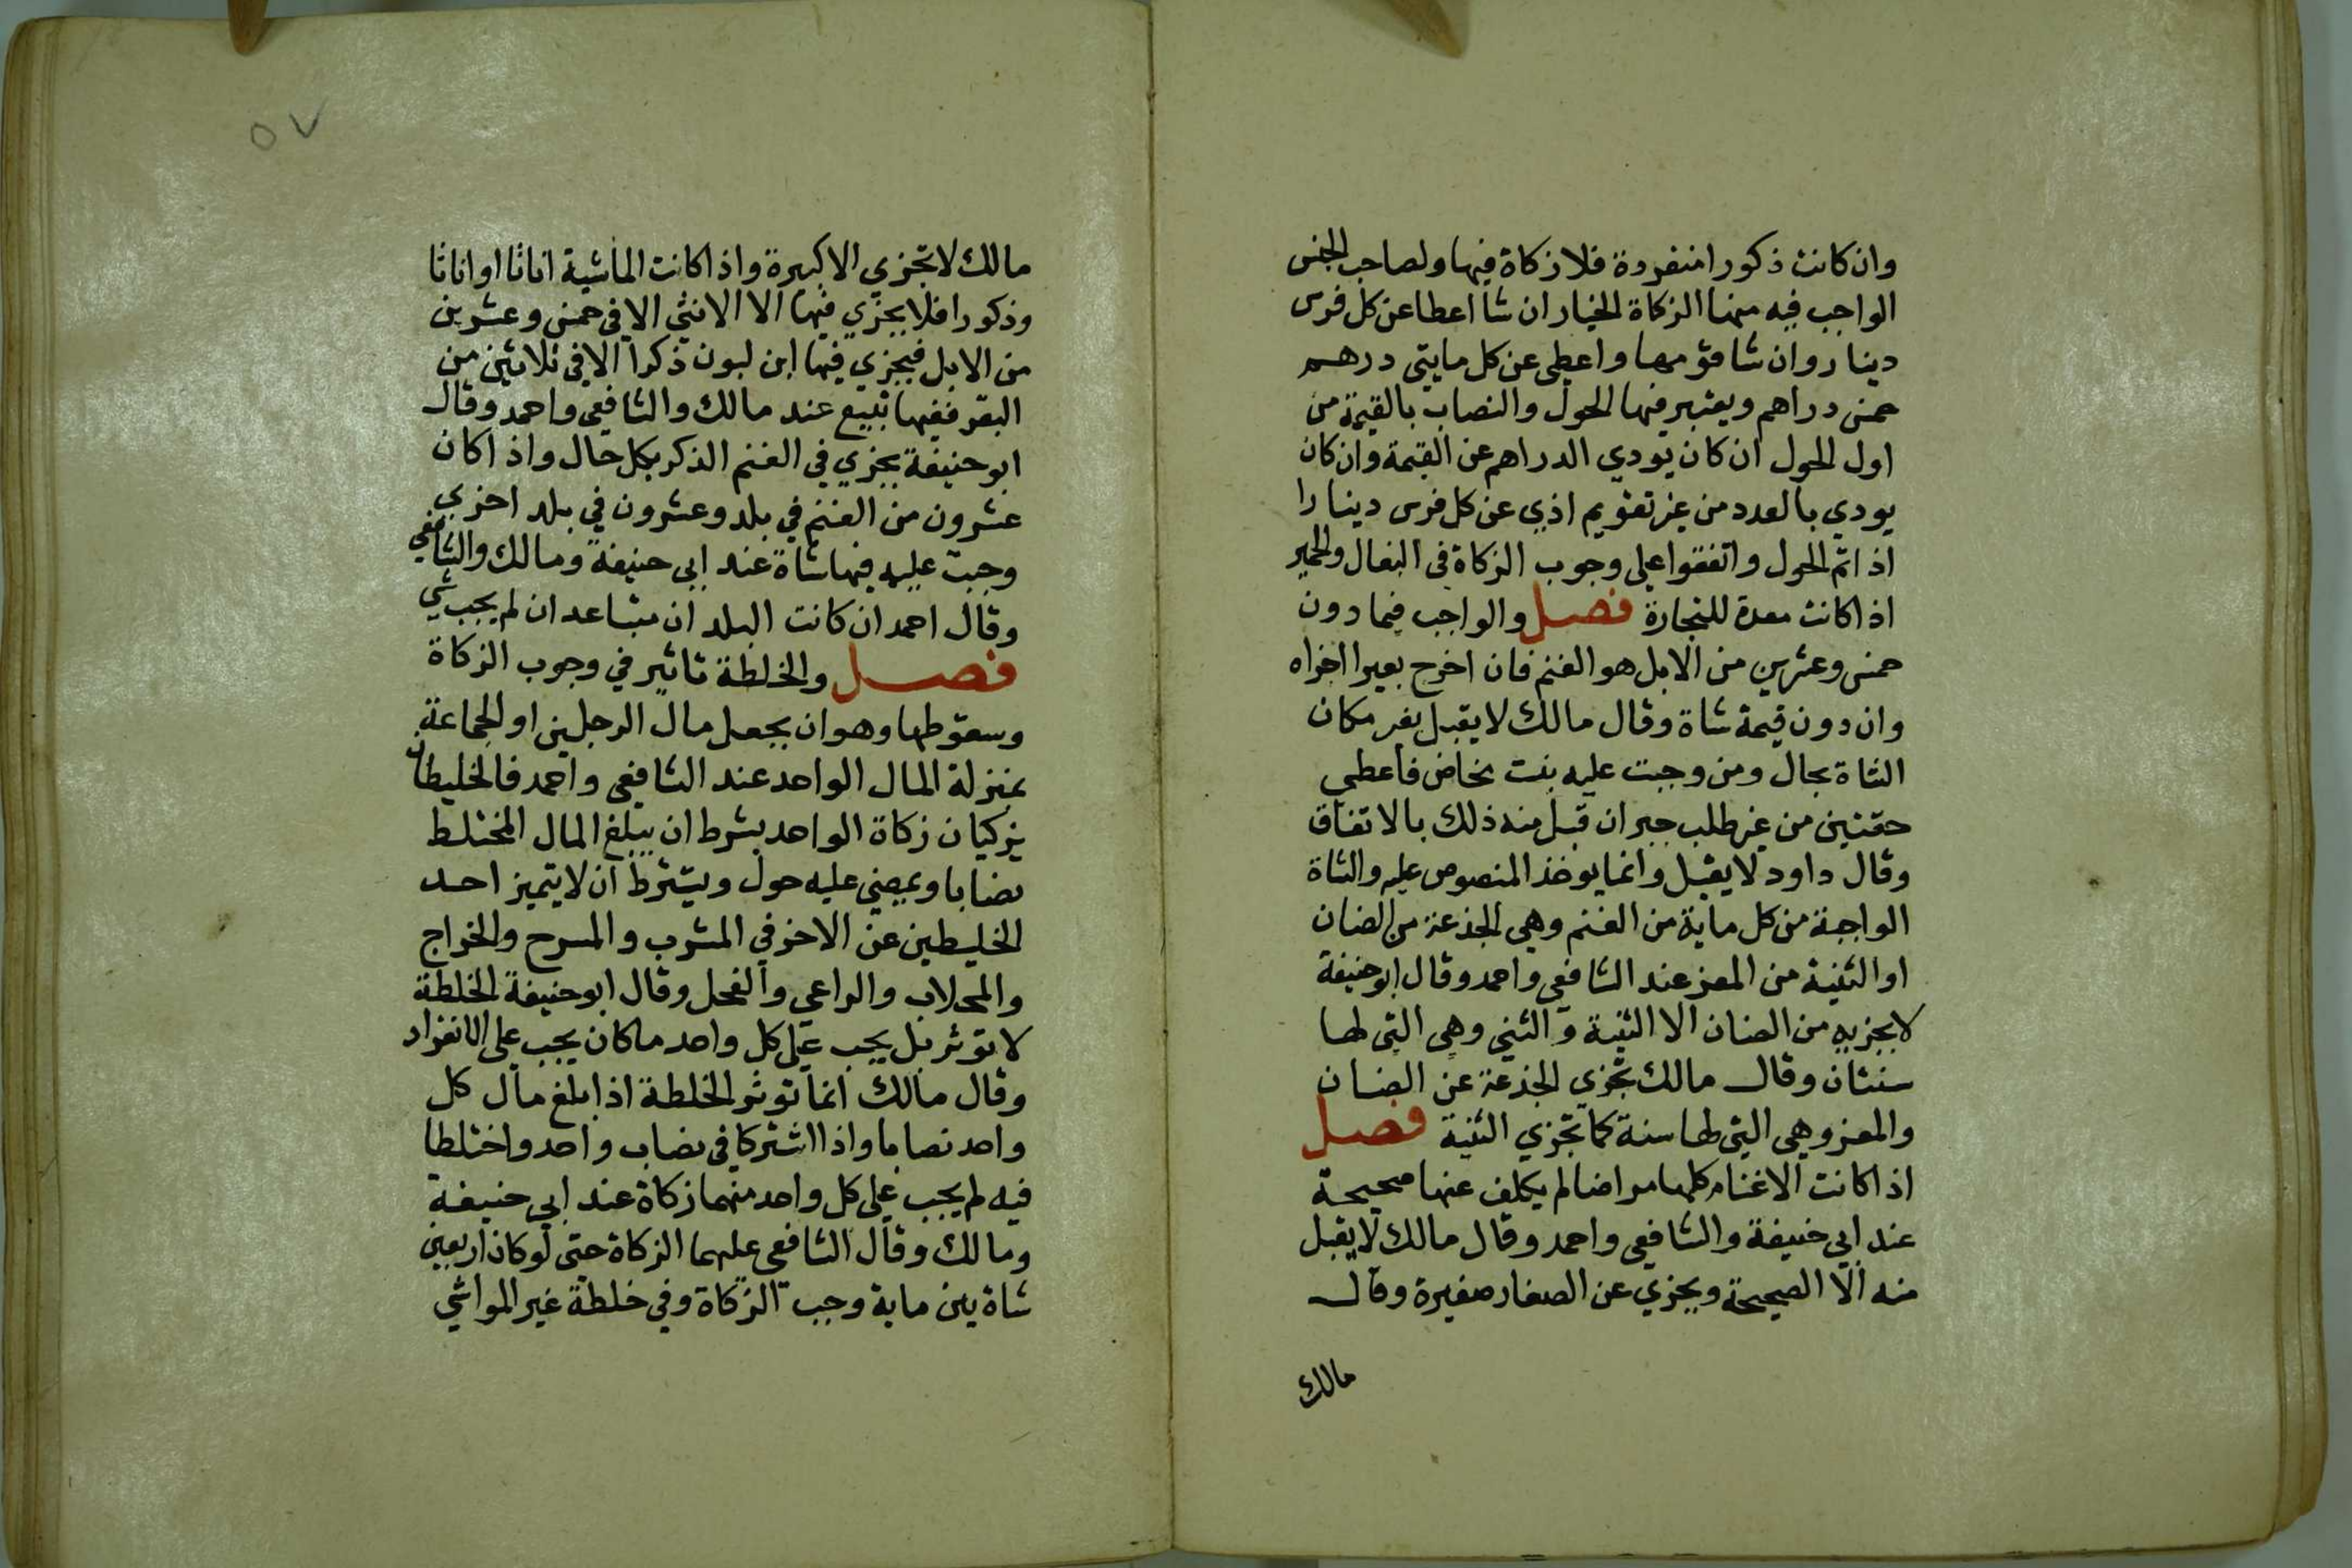 وان كانت ذكورا منفردة فلا زكاة فيها ولصاحب الجنس
الواجب فيه منها الزكاة الخيار ان شا اعطا عن كل فرس
دينار وان شا قومها واعطى عن كل مايتى درهم
خمس دراهم ويعتبر فيها الحول والنصاب بالقيمة من
اول الحول ان كان يودي الدراهم عن القيمة وان كان
يودي بالعدد من غير تقويم اذي عن كل فرس دينارا
اذا تم الحول واتفقوا على وجوب الزكاة في البغال والحمير
اذا كانت معدة للتجارة فصل والواجب فيما دون
خمس وعشرين من الابل هو الغنم فان اخرج بعيرا اجزاه
وان دون قيمة شاة وقال مالك لا يقبل بعير مكان
الشاة بحال ومن وجبت عليه بنت مخاض فاعطى
حقتين من غير طلب جبران قبل منه ذلك بالاتفاق
وقال داود لا يقبل وانما يوخذ المنصوص عليه والشاة
الواجبة من كل ماية من الغنم وهي الجذعة من الضان
او الثنية من المعز عند الشافعي واحمد وقال ابو حنيفة
لا يجزيه من الضان الا الثنية والثني وهي التي لها
سنتان وقال مالك تجزي الجذعة عن الضان
والمعز وهي التي لها سنة كما تجزي الثنية فصل
اذا كانت الاغنام كلها مراضا لم يكلف عنها صحيحة
عند ابي حنيفة والشافعي واحمد وقال مالك لا يقبل
منه الا الصحيحة ويجزي عن الصغار صغيرة وقال
مالك
٥٧
مالك لا تجزي الا كبيرة واذا كانت الماشية اناثا او اناثا
وذكورا فلا يجزي فيها الا الانثي الا في خمس وعشرين
من الابل فيجزي فيها ابن لبون ذكرا الا في ثلاثين من
البقر ففيها تبيع عند مالك والشافعي واحمد وقال
ابو حنيفة يجزي في الغنم الذكر بكل حال واذا كان
عشرون من الغنم في بلد وعشرون في بلد اخري
وجبت عليه فيها شاة عند ابي حنيفة ومالك والشافعي
وقال احمد ان كانت البلدان متباعدان لم يجب شي
فصل والخلطة تاثير في وجوب الزكاة
وسقوطها وهو ان يجعل مال الرجلين او الجماعة
بمنزلة المال الواحد عند الشافعي واحمد فالخليطان
يزكيان زكاة الواحد بشرط ان يبلغ المال المختلط
نصابا ويمضي عليه حول ويشترط ان لا يتميز احد
الخليطين عن الاخر في المشرب والمسرح والخراج
والمحلاب والراعي والفحل وقال ابو حنيفة الخلطة
لا توثر بل يجب على كل واحد ما كان يجب على الانفراد
وقال مالك انما توثر الخلطة اذا بلغ مال كل
واحد نصابا واذا اشتركا في نصاب واحد واختلطا
فيه لم يجب على كل واحد منهما زكاة عند ابي حنيفة
ومالك وقال الشافعي عليهما الزكاة حتى لو كان اربعين
شاة بين ماية وجبت الزكاة وفي خلطة غير المواشي